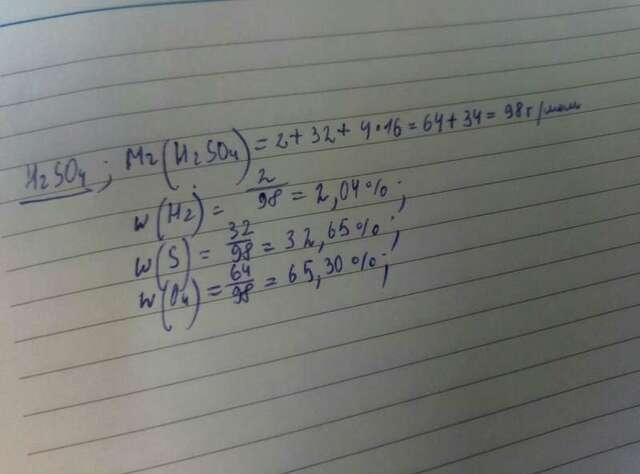 H₂SO₄; Mr(H₂SO₄) = 2 + 32 + 4·16 = 64 + 34 = 98 г/моль
w(H₂) = 2/98 = 2,04%;
w(S) = 32/98 = 32,65%;
w(O₄) = 64/98 = 65,30%;